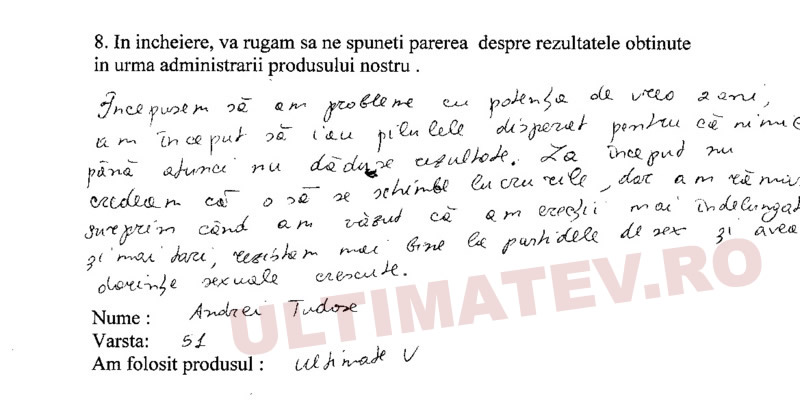 8. In incheiere, va rugam sa ne spuneti parerea despre rezultatele obtinute
in urma administrarii produsului nostru .
Începusem să am probleme cu potența de vreo 2 ani,
am început să iau pilulele disperat pentru că nimic
până atunci nu dăduse rezultate. La început nu
credeam că o să se schimbe lucrurile, dar am rămas
surprins când am văzut că am erecții mai îndelungat
și mai tari, rezistam mai bine la partidele de sex și avea
dorințe sexuale crescute.
Nume : Andrei Tudose
Varsta: 51
Am folosit produsul : Ultimate V
ULTIMATEV.RO